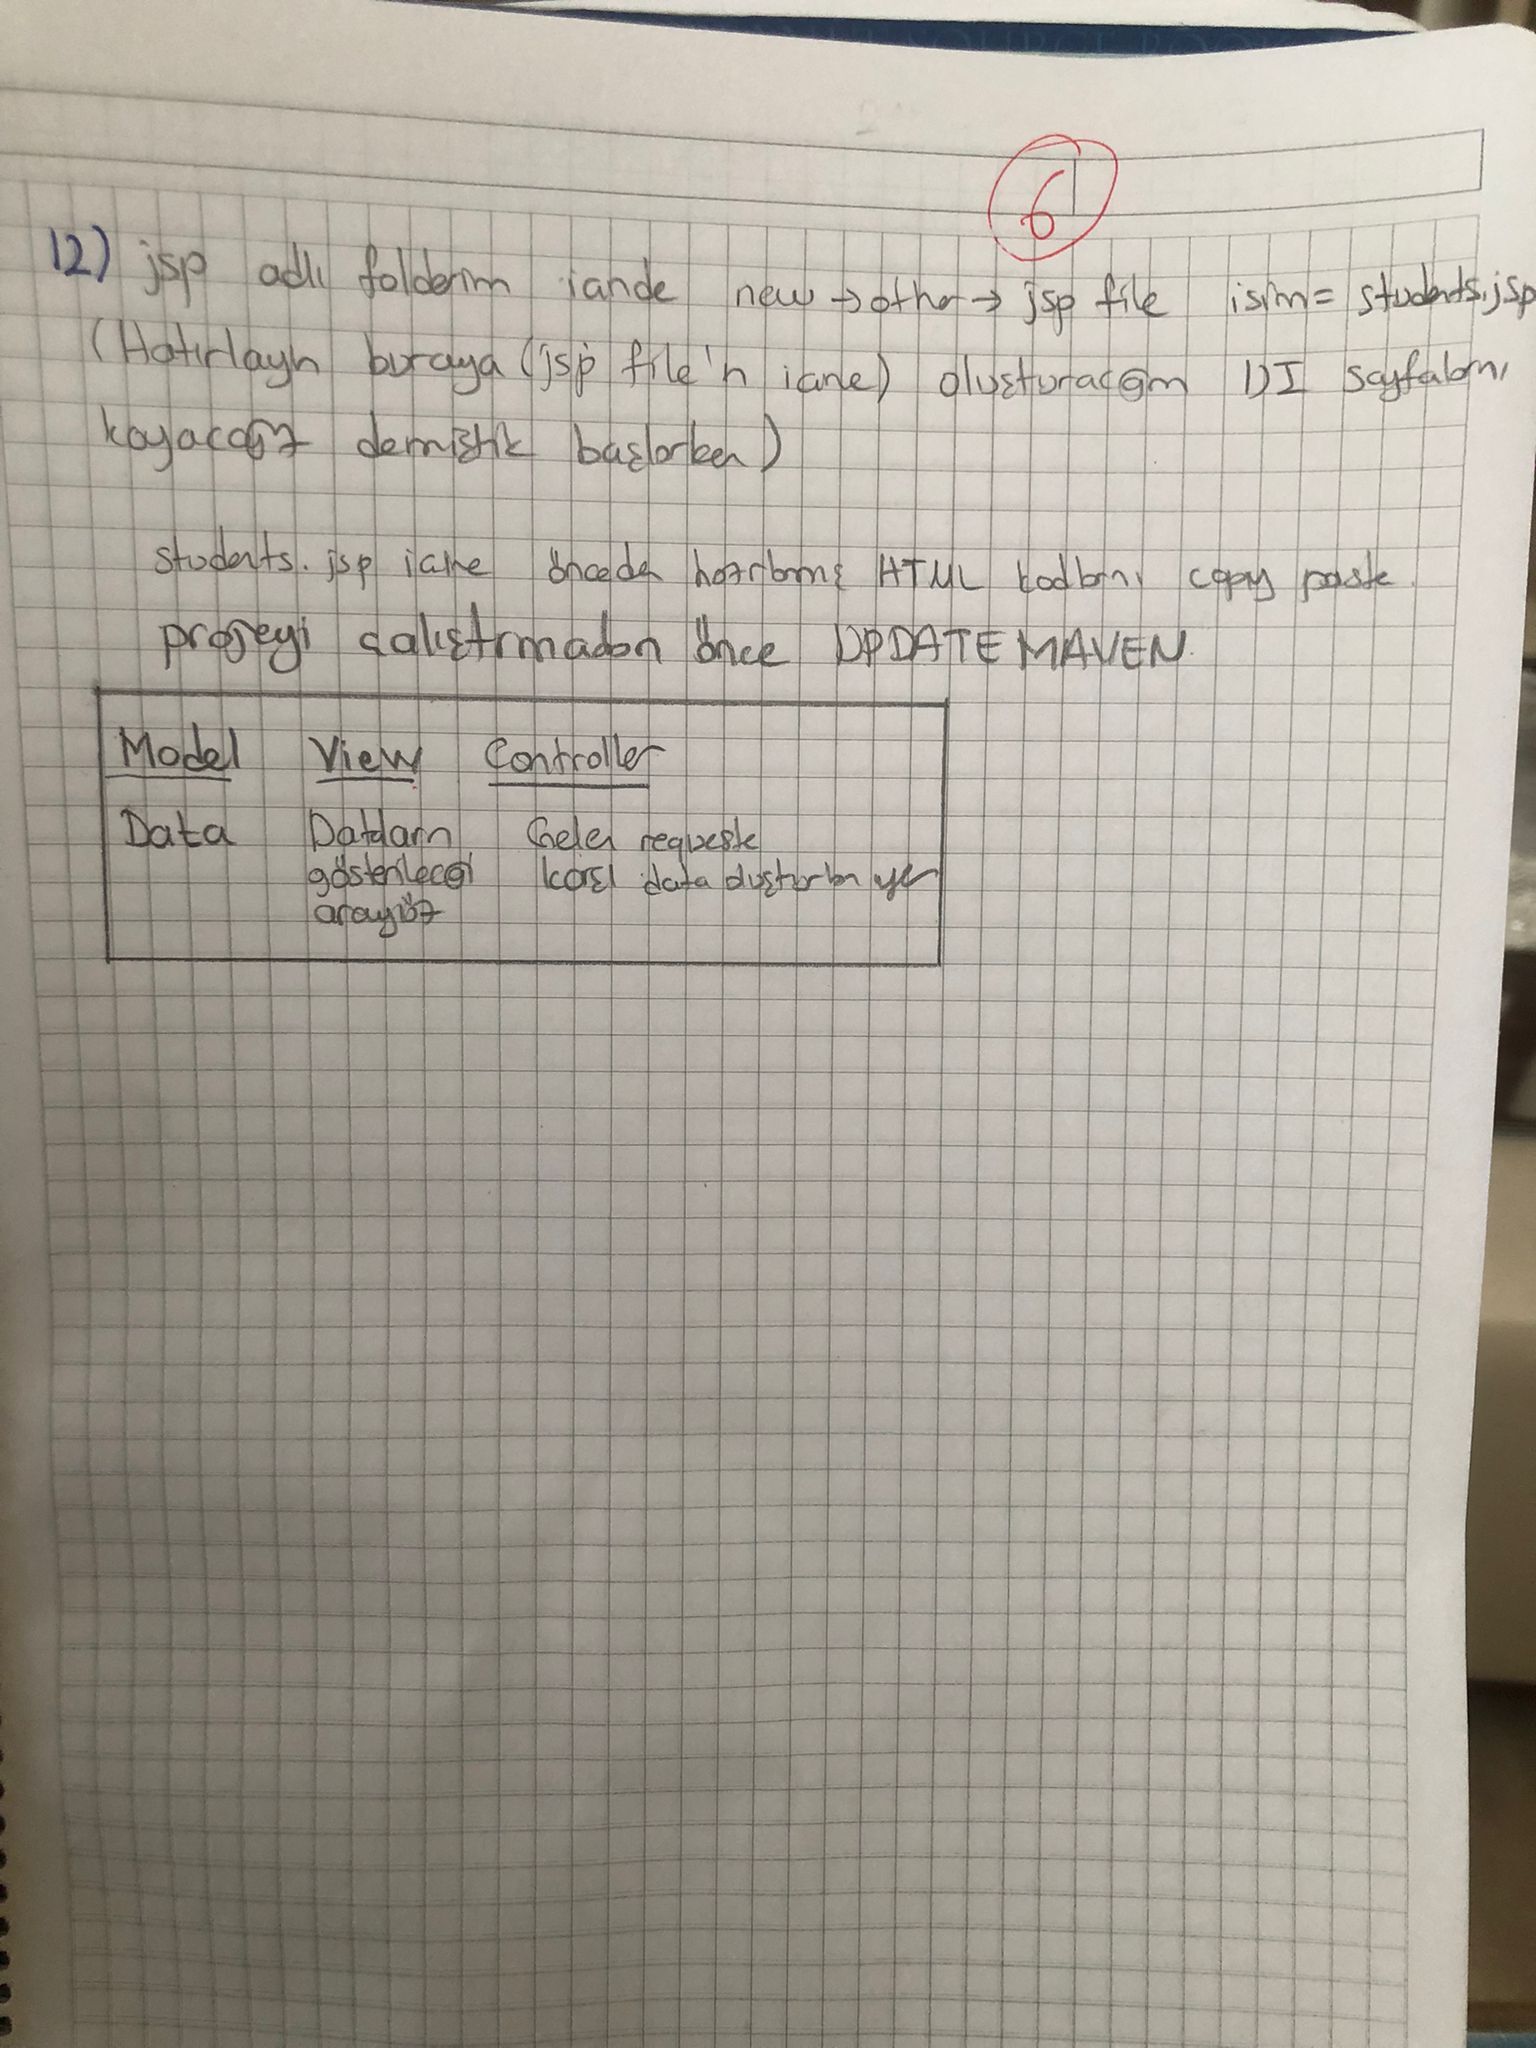 6
12) jsp adlı folderım içinde new → other → jsp file isim = students.jsp
(Hatırlayın buraya (jsp file'ın içine) oluşturacağım UI sayfalarını
koyacağız demiştik başlarken)
students.jsp içine önceden hazırlanmış HTML kodlarını copy paste.
projeyi çalıştırmadan önce UPDATE MAVEN.
Model View Controller
Data Dataların Gelen requeste
gösterileceği karşı data oluşturulan yer
arayüz